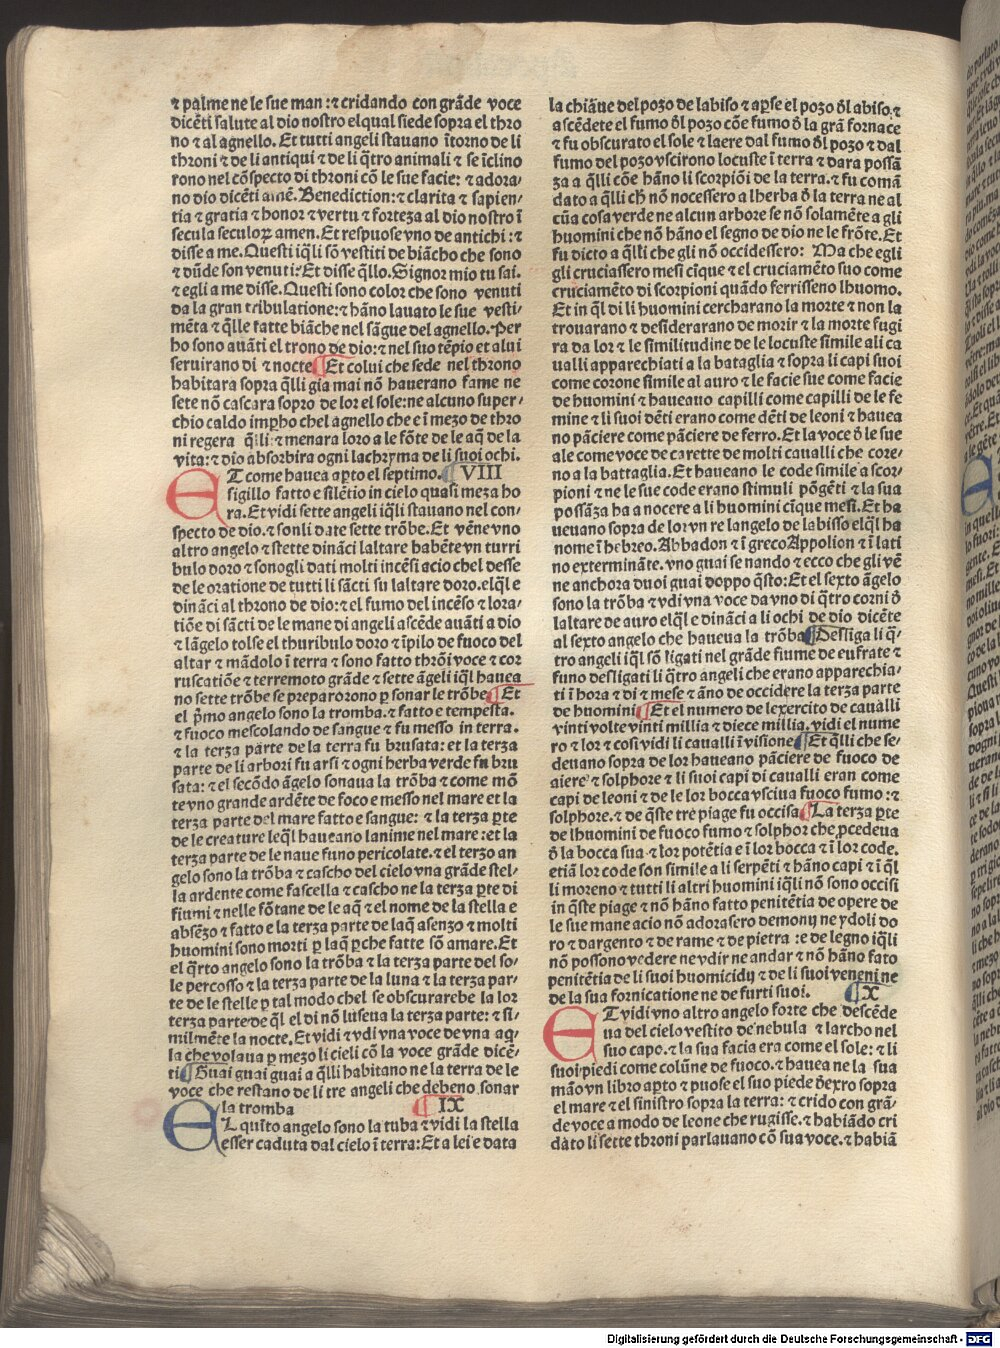 ⁊ palme ne le sue man :⁊ cridando con grāde voce
dicēti salute al dio nostro elqual siede sopra el thro
no ⁊ al agnello. Et tutti angeli stauano ītorno de li
throni ⁊ de li antiqui ⁊ de li q̄tro animali ⁊ se īclino
rono nel cōspecto di throni cō le sue facie: ⁊ adora-
no dio dicēti amē. Benediction: ⁊ clarita ⁊ sapien-
tia ⁊ gratia ⁊ honor ⁊ vertu ⁊ forteza al dio nostro ī
secula seculoꝝ amen. Et respuose vno de antichi : ⁊
disse a me. Questi iq̄li sō vestiti de biācho che sono
⁊ dūde son venuti? Et disse q̄llo. Signor mio tu sai.
⁊ egli a me disse. Questi sono color che sono venuti
da la gran tribulatione: ⁊ hāno lauato le sue vesti-
mēta ⁊ q̄lle fatte biāche nel sāgue del agnello. Per
ho sono auāti el trono de dio: ⁊ nel suo tēpio et a lui
seruirano di ⁊ nocte ¶ Et colui che sede nel throno
habitara sopra q̄lli gia mai nō hauerano fame ne
sete nō cascara sopro de lor el sole: ne alcuno super-
chio caldo imꝑho chel agnello che e ī mezo de thro
ni regera q̄lli: ⁊ menara loro a le fōte de le aq̄ de la
vita: ⁊ dio absorbira ogni lachryma de li suoi ochi.
ET come hauea aꝑto el septimo. ¶ VIII
sigillo fatto e silētio in cielo quasi meza ho
ra. Et vidi sette angeli iq̄li stauano nel con-
specto de dio. ⁊ sonli date sette trōbe. Et vēne vno
altro angelo ⁊ stette dināci laltare habēte vn turri
bulo doro ⁊ sonogli dati molti incēsi acio chel desse
de le oratione de tutti li sācti su laltare doro. elq̄l e
dināci al throno de dio: ⁊ el fumo del incēso ⁊ lora-
tiōe di sācti de le mane di angeli ascēde auāti a dio
⁊ lāgelo tolse el thuribulo doro ⁊ īpilo de fuoco del
altar ⁊ māndolo ī terra ⁊ sono fatto thrōi voce ⁊ cor
ruscatiōe ⁊ terremoto grāde ⁊ sette āgeli iq̄l hauea
no sette trōbe se prepарorono ꝑ sonar le trōbe ¶ Et
el p̄mo angelo sono la tromba. ⁊ fatto e tempesta.
⁊ fuoco mescolando de sangue ⁊ fu messo in terra.
⁊ la terza parte de la terra fu brusata: et la terza
parte de li arbori fu arsi ⁊ ogni herba verde fu bru
sata: ⁊ el secōdo āgelo sonaua la trōba ⁊ come mō
te vno grande ardēte de foco e messo nel mare et la
terza parte del mare fatto e sangue: ⁊ la terza ꝑte
de le creature leq̄l haueano lanime nel mare: et la
terza parte de le naue funo pericolate. ⁊ el terzo an
gelo sono la trōba ⁊ cascho del cielo vna grāde stel-
la ardente come fascella ⁊ cascho ne la terza ꝑte di
fiumi ⁊ nelle fōtane de le aq̄ ⁊ el nome de la stella e
absēzo ⁊ fatto e la terza parte de laq̄ asenzo ⁊ molti
huomini sono morti ꝑ laq̄ ꝑche fatte sō amare. Et
el q̄rto angelo sono la trōba ⁊ la terza parte del so-
le percosso ⁊ la terza parte de la luna ⁊ la terza par-
te de le stelle ꝑ tal modo chel se obscurarebe la lor
terza parte de q̄l el di nō luseua la terza parte: ⁊ si-
milmēte la nocte. Et vidi ⁊ vdi vna voce de vna aq̄-
la che volaua ꝑ mezo li cieli cō la voce grāde dicē-
ti ¶ Guai guai guai a q̄lli habitano ne la terra de le
voce che restano de li tre angeli che debeno sonar
la tromba ¶ IX
EL quīto angelo sono la tuba ⁊ vidi la stella
esser caduta dal cielo ī terra: Et a lei e data
la chiāue del pozo de labiso ⁊ aꝑse el pozo ḋl abiso. ⁊
ascēdete el fumo ḋl pozo cōe fumo ḋ la grā fornace
⁊ fu obscurato el sole ⁊ laere dal fumo ḋl pozo ⁊ dal
fumo del pozo vscirono locuste ī terra ⁊ dara possā
za a q̄lli cōe hāno li scorpiōi de la terra. ⁊ fu comā
dato a q̄lli ch̄ nō nocessero a lherba ḋ la terra ne al
cūa cosa verde ne alcun arbore se nō solamēte a gli
huomini che nō hāno el segno de dio ne le frōte. Et
fu dicto a q̄lli che gli nō occidessero: Ma che egli
gli cruciassero mesi cīque ⁊ el cruciamēto suo come
cruciamēto di scorpioni quādo ferrisseno lhuomo.
Et in q̄l di li huomini cercharano la morte ⁊ non la
trouarano ⁊ desīderarano de morir ⁊ la morte fugi
ra da lor ⁊ le similitudine de le locuste simile ali ca
ualli apparechiati a la bataglia ⁊ sopra li capi suoi
come corone simile al auro ⁊ le facie sue come facie
de huomini ⁊ haueano capilli come capilli de le fe
mine ⁊ li suoi dēti erano come dēti de leoni ⁊ hauea
no pāciere come pāciere de ferro. Et la voce ḋ le sue
ale come voce de carette de molti caualli che core-
no a la battaglia. Et haueano le code simile a scor-
pioni ⁊ ne le sue code erano stimuli pōgēti ⁊ la sua
possāza ha a nocere a li huomini cīque mesi. Et ha
ueuano sopra de lor vn re langelo de labisso elq̄l ha
nome ī hebreo. Abbadon ⁊ ī greco Appolion ⁊ ī lati
no extermināte. vno guai se nando ⁊ ecco che gli vē
ne anchora duoi guai doppo q̄sto: Et el sexto āgelo
sono la trōba ⁊ vdi vna voce da vno di q̄tro corni ḋ
laltare de auro elq̄l e dināci a li ochi de dio dicēte
al sexto angelo che haueua la trōba ¶ Desliga li q̄-
tro angeli iq̄l sō ligati nel grāde fiume de eufrate ⁊
funo desligati li q̄tro angeli che erano apparechia-
ti ī hora ⁊ di ⁊ mese ⁊ āno de occidere la terza parte
de huomini ¶ Et el numero de lexercito de caualli
vinti volte vinti millia ⁊ diece millia. vidi el nume
ro ⁊ lor ⁊ cosi vidi li caualli ī visione ¶ Et q̄lli che se-
deuano sopra de lor haueano pāciere de fuoco de
aiere ⁊ solphore ⁊ li suoi capi di caualli eran come
capi de leoni ⁊ de le lor bocca vsciua fuoco fumo : ⁊
solphore. ⁊ de q̄ste tre piage fu occisa ¶ La terza ꝑte
de lhuomini de fuoco fumo ⁊ solphor che ꝓcedeua
ḋ la bocca sua ⁊ lor potētia e ī lor bocca ⁊ ī lor code.
etiā lor code son simile a li serpēti ⁊ hāno capi ⁊ ī q̄l
li moreno ⁊ tutti li altri huomini iq̄li nō sono occisi
in q̄ste piage ⁊ nō hāno fatto penitētia de opere de
le sue mane acio nō adorasero demonij ne ydoli do
ro ⁊ dargento ⁊ de rame ⁊ de pietra : e de legno iq̄li
nō possono vedere ne vdir ne andar ⁊ nō hāno fato
penitētia de li suoi huomicidij ⁊ de li suoi veneni ne
de la sua fornicatione ne de furti suoi. ¶ X
ET vidi vno altro angelo forte che descēde
ua del cielo vestito de nebula ⁊ larcho nel
suo capo. ⁊ la sua facia era come el sole: ⁊ li
suoi piedi come colūne de fuoco. ⁊ hauea ne la sua
māo vn libro aꝑto ⁊ puose el suo piede ḋexro sopra
el mare ⁊ el sinistro sopra la terra: ⁊ crido con grā-
de voce a modo de leone che rugisse. ⁊ habiādo cri
dāto li sette throni parlauano cō sua voce. ⁊ habiā
Digitalisierung gefördert durch die Deutsche Forschungsgemeinschaft - DFG